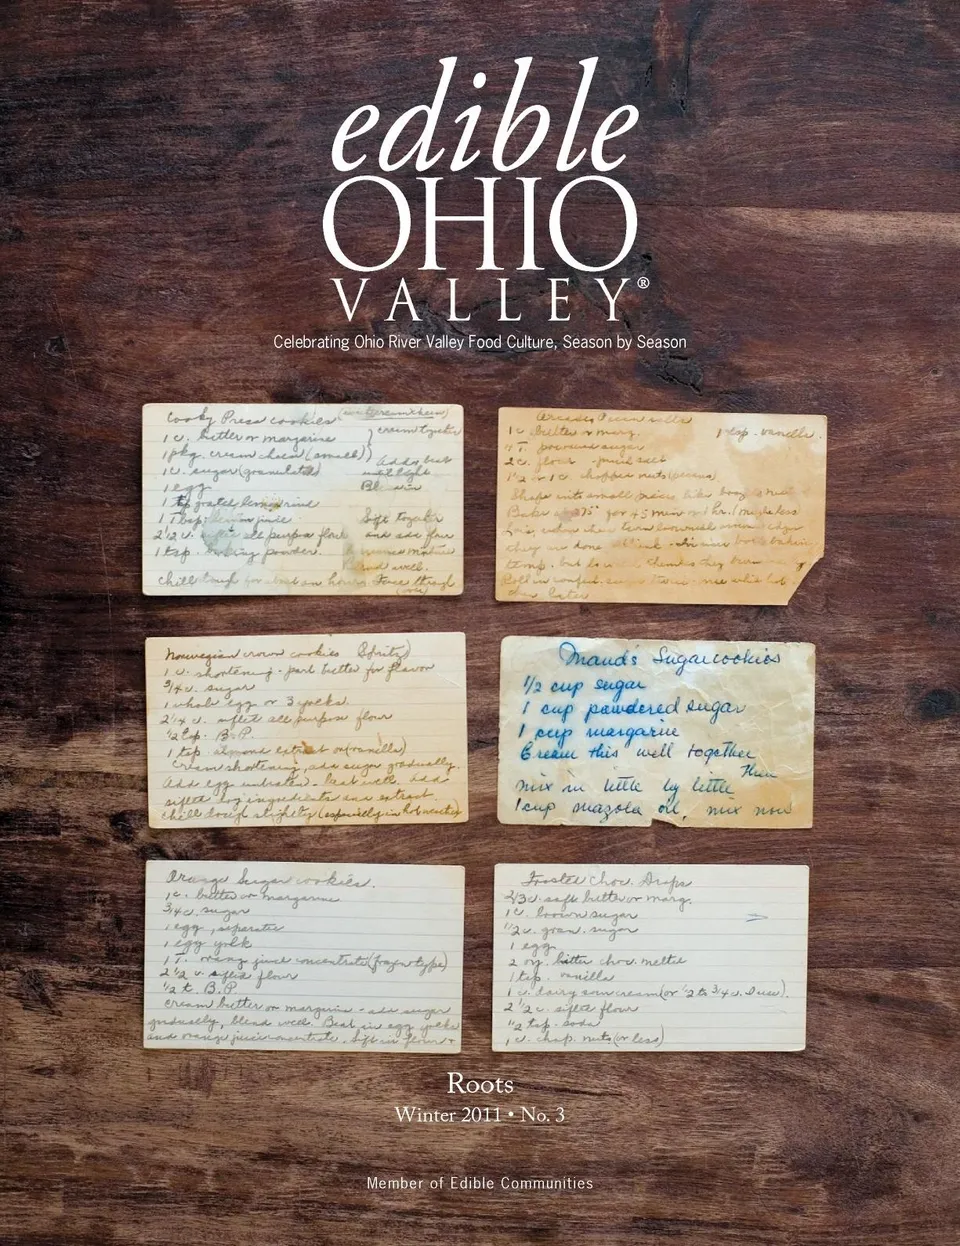 edible
OHIO
VALLEY®
Celebrating Ohio River Valley Food Culture, Season by Season
Cooky Press cookies
1 c. butter or margarine } cream together
1 pkg. cream cheese (small)
1 c. sugar (granulated) Add, beat
until light
1 egg Blend in
1 tsp grated lemon rind
1 T lemon juice Sift together
2 1/2 c. sifted all purpose flour and add flour
1 tsp. baking powder.
blend well.
Chill dough for about an hour. Force through
Pecan rolls
1 c. butter or marg. 1 tsp. vanilla.
4 T. powdered sugar
2 c. flour
1/2 or 1 c. chopper nuts (pecans)
Shape into small
Bake at 275° for 45 min or 1 hr. (maybe less)
they are done
Roll in
later
Norwegian crown cookies (Spritz)
1 c. shortening - part butter for flavor
3/4 c. sugar
1 whole egg or 3 yolks.
2 1/4 c. sifted all purpose flour
1/2 tsp. B.P.
1 tsp almond extract or (vanilla)
Cream shortening, add sugar gradually.
Add egg unbeaten - beat well. Add
sifted dry ingredients and extract
Chill dough slightly (especially in hot weather)
Maud's Sugarcookies
1/2 cup sugar
1 cup powdered sugar
1 cup margarine
Cream this well together
Then
mix in little by little
1 cup mazola oil, mix now
Orange Sugar cookies.
1 c. butter or margarine
3/4 c. sugar
1 egg, separated
1 egg yolk
1 T. orange juice concentrate (frozen type)
2 1/2 c. sifted flour
1/2 t. B.P.
Cream butter or margarine - add sugar
gradually, blend well. Beat in egg yolks
and orange juice concentrate. Sift in flour +
Frosted Choc. Drops
2/3 c. soft butter or marg.
1 c. brown sugar
1/2 c. gran. sugar
1 egg
2 oz. bitter choc. melted
1 tsp. vanilla
1 c. dairy sour cream (or 1/2 to 3/4 c. I use).
2 1/2 c. sifted flour
1/2 tsp. soda
1 c. chop. nuts (or less)
Roots
Winter 2011 • No. 3
Member of Edible Communities